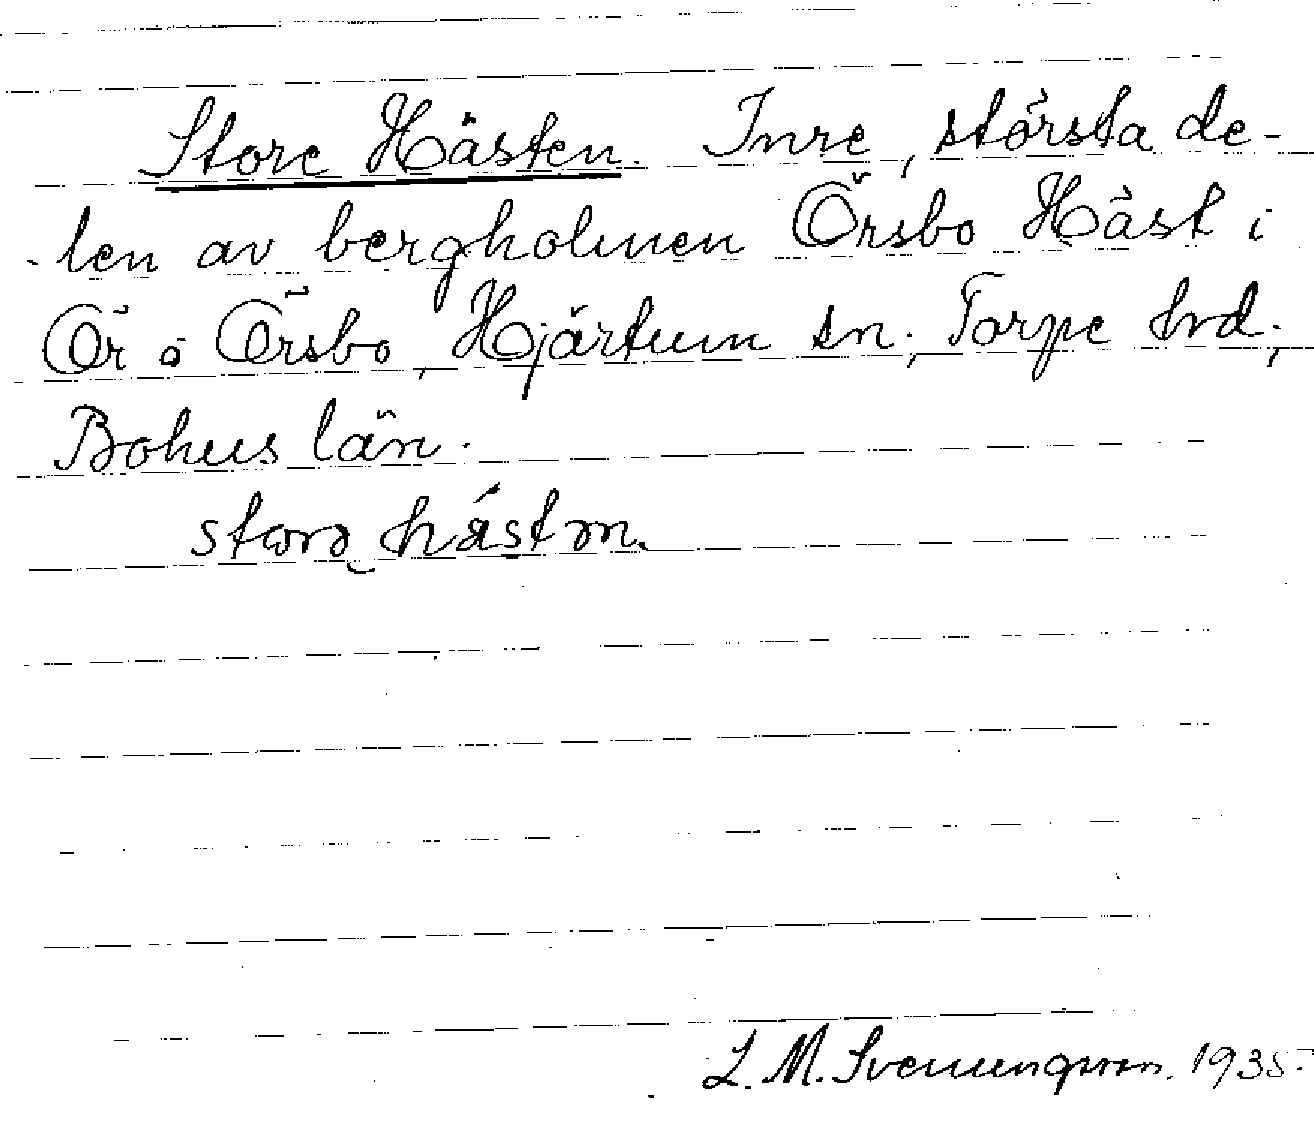 Store Hästen. Inre, största de-
len av bergholmen Örsbo Häst i
Ör o Örsbo, Hjärtum sn; Torpe hrd;
Bohus län.
L. M. Svenungsson. 1935.